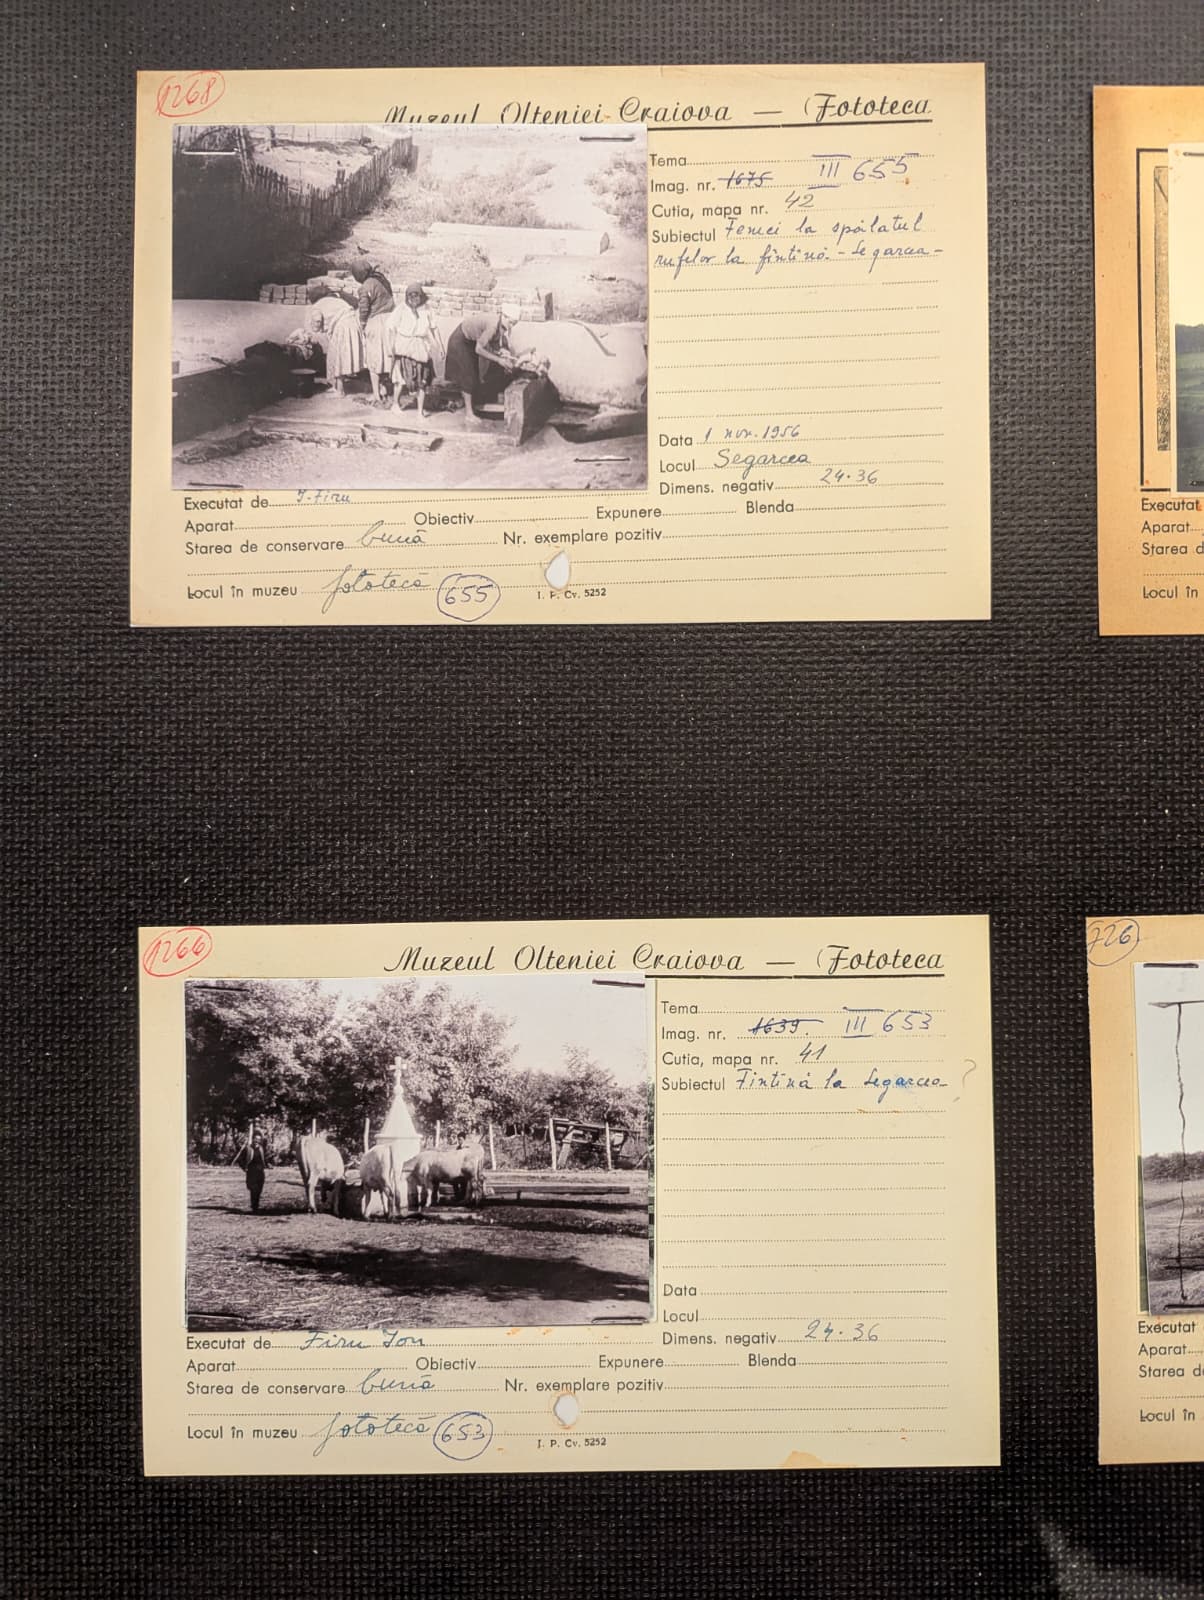 1268
Muzeul Olteniei Craiova — (Fototeca
Tema
Imag. nr. 1675 III 655
Cutia, mapa nr. 42
Subiectul Femei la spălatul
rufelor la fîntînă - Segarcea -
Data 1 nov. 1956
Locul Segarcea
Dimens. negativ 24·36
Executat de I. Firu
Aparat Obiectiv Expunere Blenda
Starea de conservare bună Nr. exemplare pozitiv
Locul în muzeu fototecă 655
I. P. Cv. 5252
Executat
Aparat
Starea d
Locul în
1266
Muzeul Olteniei Craiova — (Fototeca
Tema
Imag. nr. 1639. III 653
Cutia, mapa nr. 41
Subiectul Fîntînă la Segarcea ?
Data
Locul
Dimens. negativ 24·36
Executat de Firu Ion
Aparat Obiectiv Expunere Blenda
Starea de conservare bună Nr. exemplare pozitiv
Locul în muzeu fototecă 653
I. P. Cv. 5252
726
Executat
Aparat
Starea d
Locul în